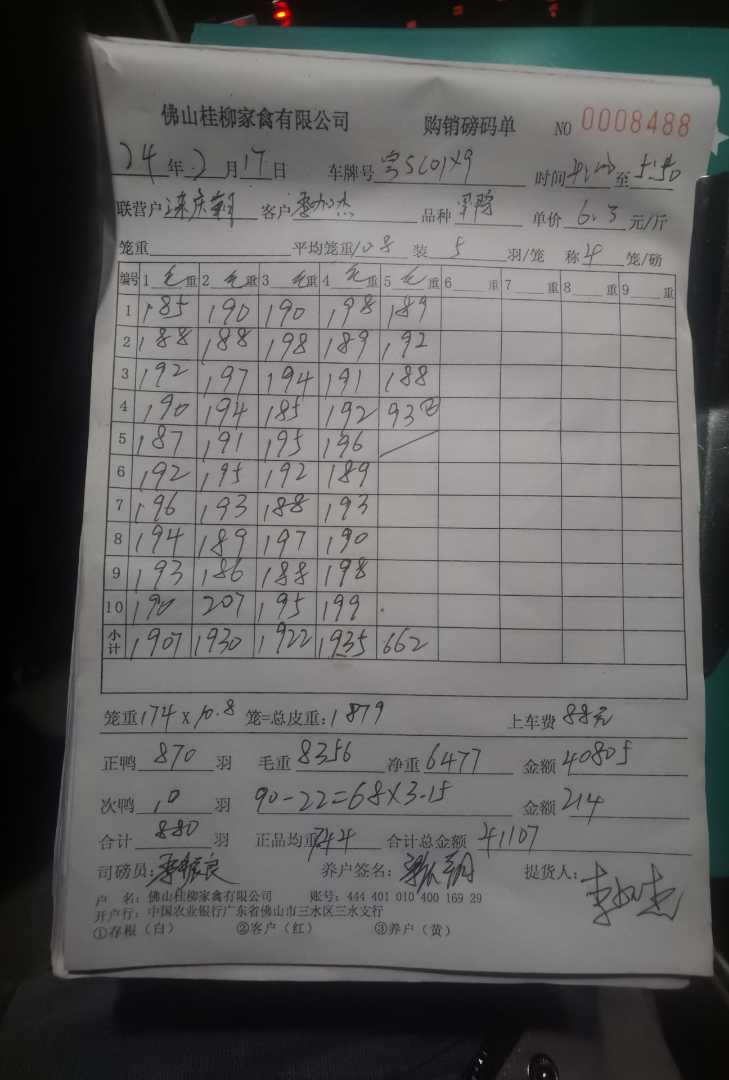 佛山桂柳家禽有限公司 购销磅码单 NO 0008488
24年2月17日 车牌号 时间 至
联营户 客户 李加杰 品种 单价 6.3 元/斤
笼重 平均笼重10.8 装 5 羽/笼 称 4 笼/磅
编号 1 毛 重 2 毛 重 3 毛 重 4 毛 重 5 毛 重 6 重 7 重 8 重 9 重
1 185 190 190 198 189
2 188 188 198 189 192
3 192 197 194 191 188
4 190 194 185 192 93
5 187 191 195 196
6 192 195 192 189
7 196 193 188 193
8 194 189 197 190
9 193 186 188 198
10 190 207 195 199
小计 1907 1930 1922 1935 662
笼重174×10.8 笼=总皮重:1879 上车费 88元
正鸭 870 羽 毛重 8356 净重 6477 金额 40805
次鸭 10 羽 90-22=68×3.15 金额 214
合计 880 羽 正品均重 744 合计总金额 41107
司磅员: 养户签名: 提货人: 李加杰
户 名: 佛山桂柳家禽有限公司 账号: 444 401 010 400 169 29
开户行: 中国农业银行广东省佛山市三水区三水支行
①存根（白） ②客户（红） ③养户（黄）